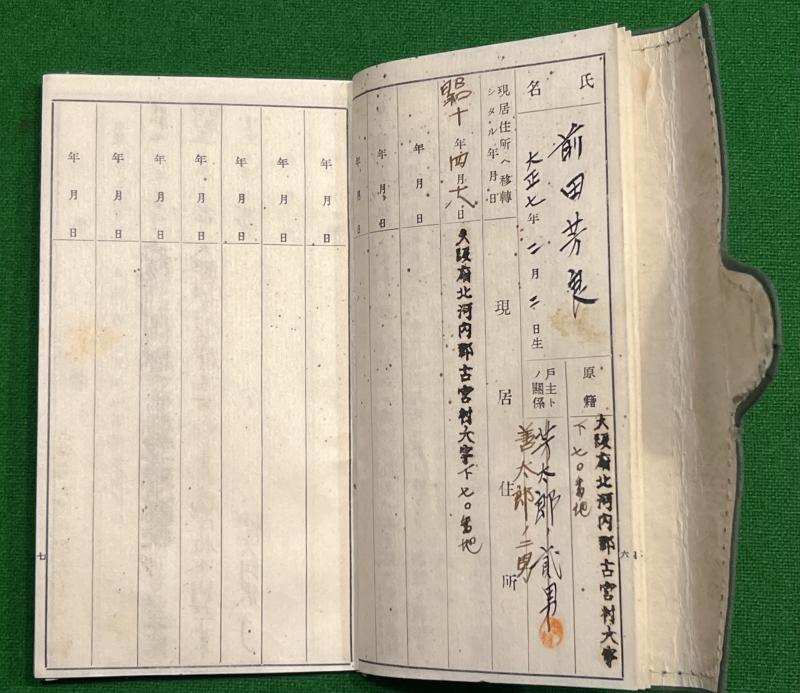 氏名
前田芳良
大正七年二月二日生
原籍
大阪府北河内郡古宮村大字
下七〇番地
戸主トノ關係
芳太郎ノ貳男
善太郎ノ二男
現居住所ヘ移轉シタル年月日
現居住所
昭和十年四月六日
大阪府北河内郡古宮村大字下七〇番地
年月日
年月日
年月日
六
年月日
年月日
年月日
年月日
年月日
年月日
年月日
七